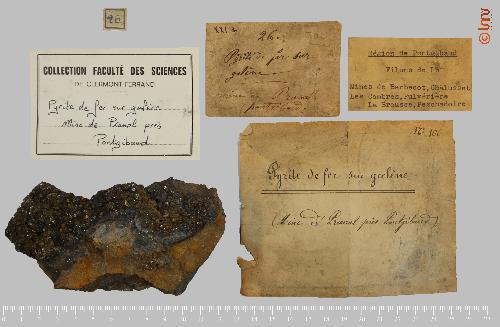 26
COLLECTION FACULTÉ DES SCIENCES
DE CLERMONT-FERRAND
Pyrite de fer sur galène
Mine de Pranal près
Pontgibaud
26.
Pyrite de fer sur
galène
mine de Pranal
pontgibaud
Région de Pontgibaud
Filons de la
Mines de Barbecot, Chalusset
Les Combres, Pulvérière
La Brousse, Peschadoire
Pyrite de fer sur galène
(Mine de Pranal près Pontgibaud)